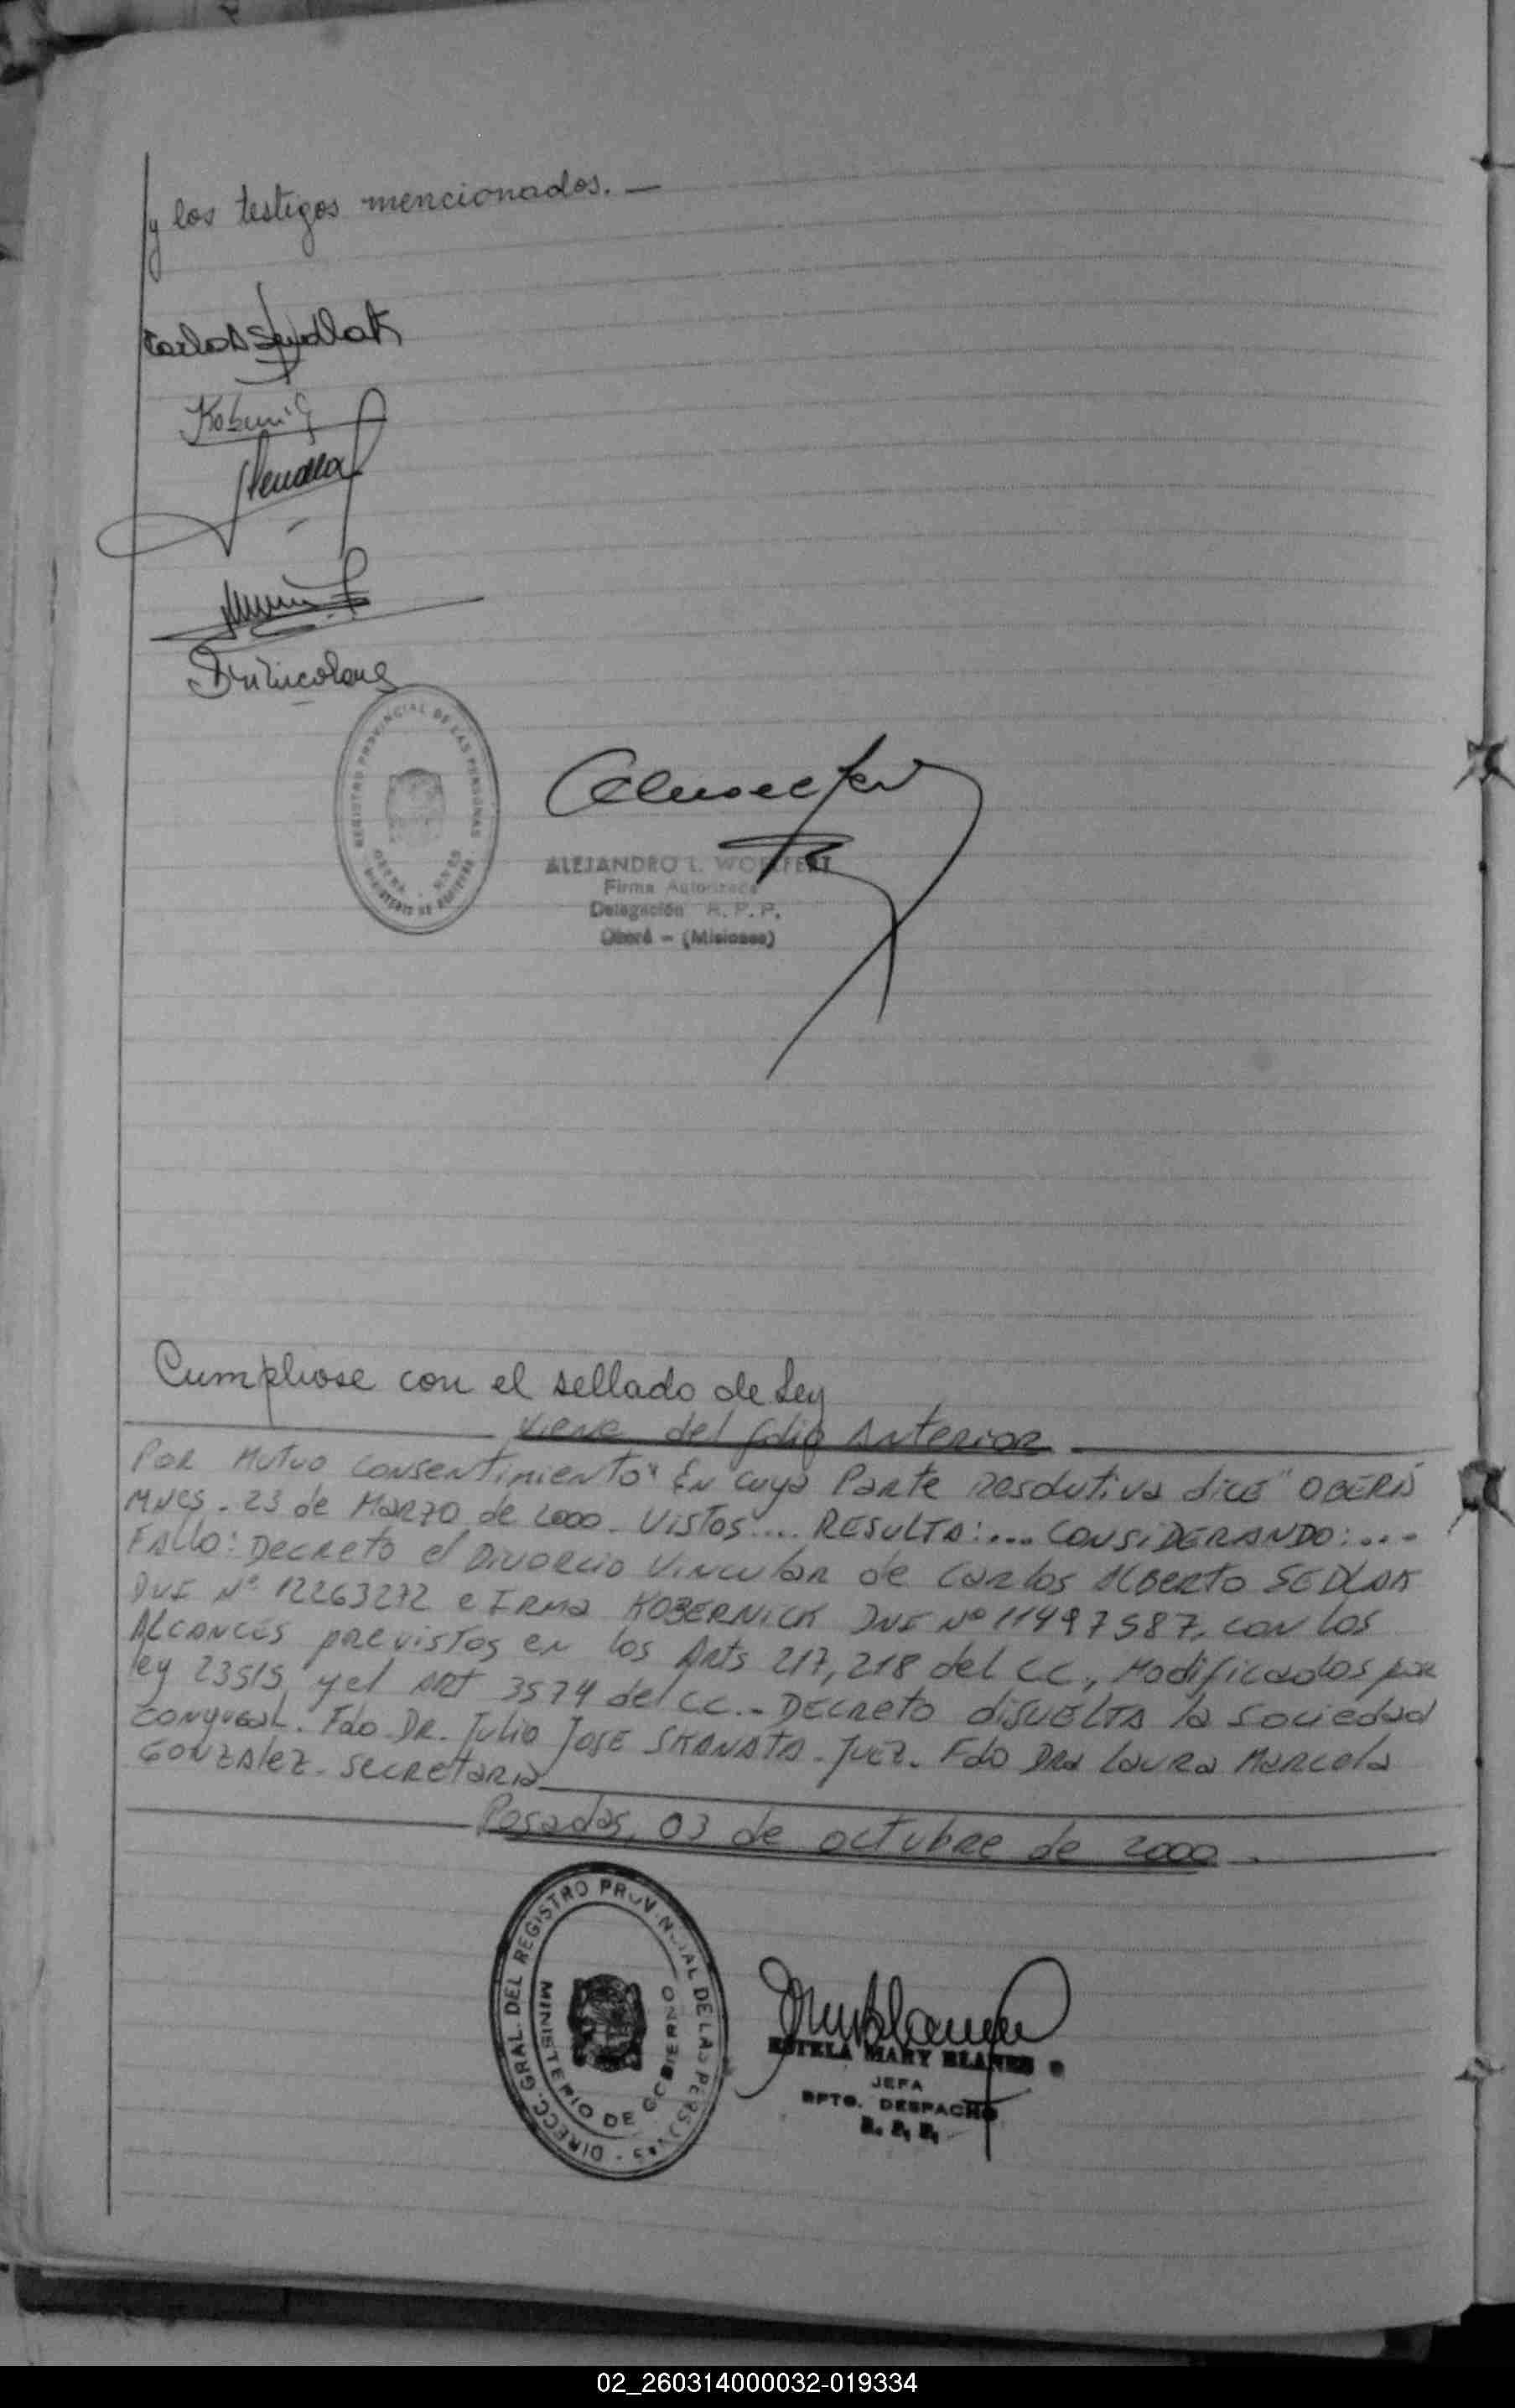 y los testigos mencionados. —
REGISTRO PROVINCIAL DE LAS PERSONAS
OBERA - MNES
ALEJANDRO L. WOLFERT
Firma Autorizada
Delegación R. P. P.
Oberá - (Misiones)
Cumpliose con el sellado de Ley
viene del folio Anterior
POR MUTUO CONSENTIMIENTO" EN cuya PARTE resolutiva dice "OBERÁ
MNES. 23 de MARZO de 2000. VISTOS.... RESULTA:... CONSIDERANDO:....
FALLO: DECRETO el DIVORCIO VINCULAR de CARLOS ALBERTO SEDLAK
DNI Nº 12263272 e IRMA KOBERNICK DNI Nº 11497587, CON LOS
ALCANCES previstos en los Arts 217, 218 del CC., Modificados por
ley 23515 y el ART 3574 del CC.- DECRETO DISUELTA la Sociedad
CONYUGAL. Fdo. DR. Julio JOSE SKANATA - JUEZ. Fdo DRA LAURA MARCELA
GONZALEZ - SECRETARIA
Posadas, 03 de octubre de 2000.
DIRECC. GRAL. DEL REGISTRO PROVINCIAL DE LAS PERSONAS
MINISTERIO DE GOBIERNO
ESTELA MARY BLANES
JEFA
DPTO. DESPACHO
R. P. P.
02_260314000032-019334